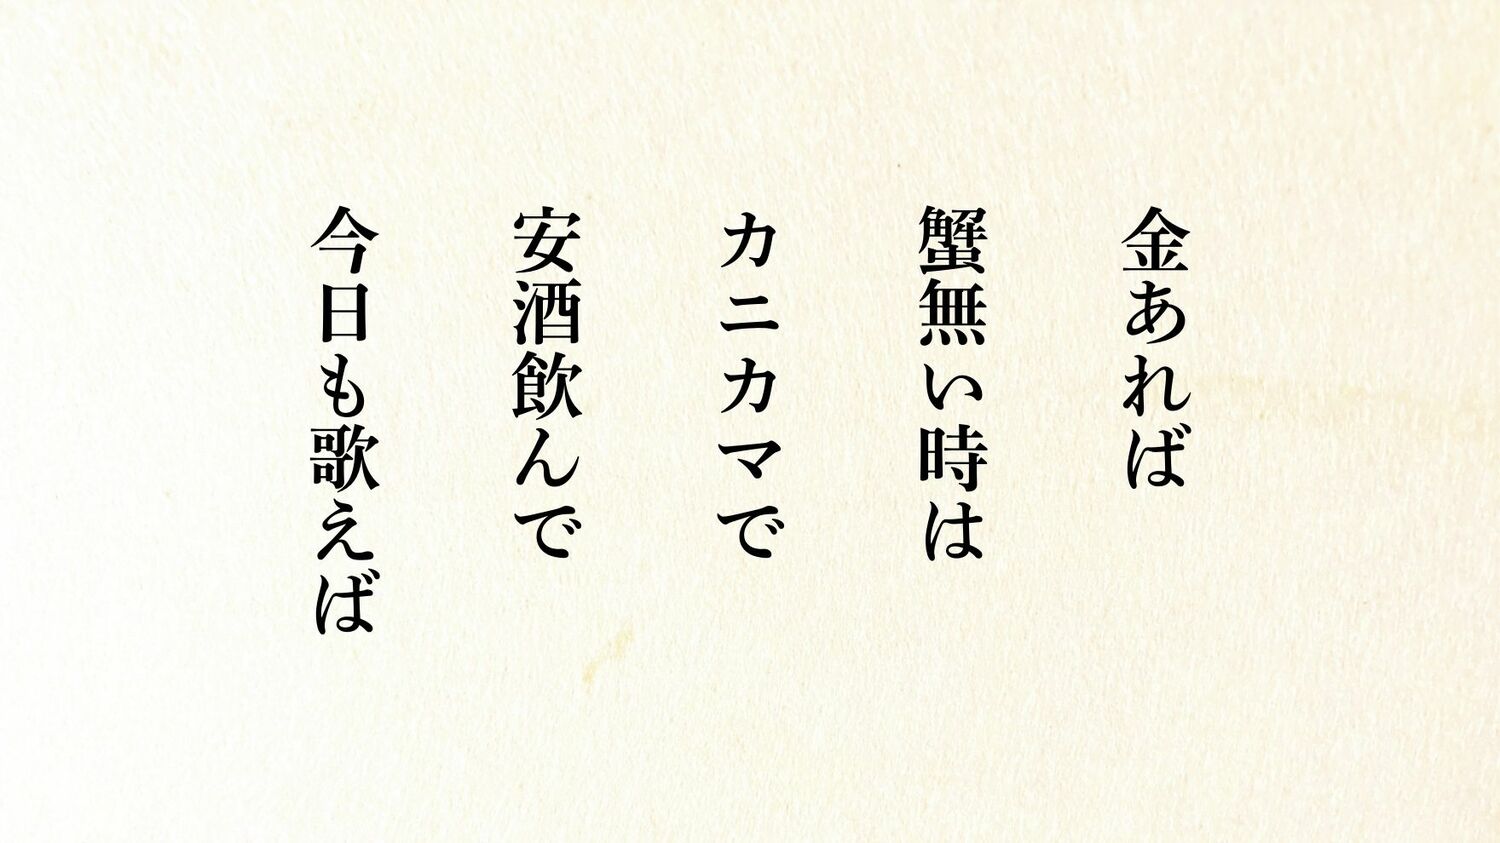 金あれば
蟹無い時は
カニカマで
安酒飲んで
今日も歌えば